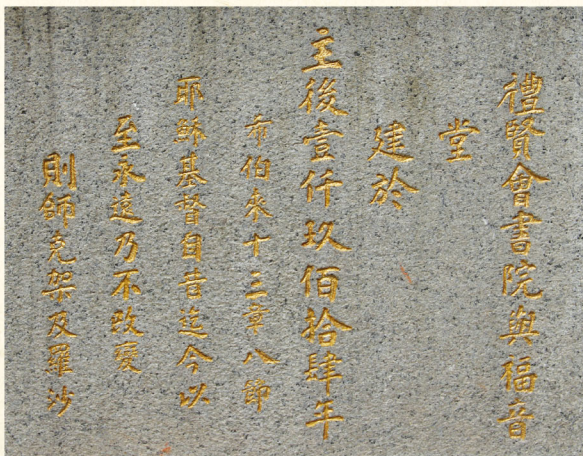 禮賢會書院與福音
堂
建於
主後壹仟玖佰拾肆年
希伯來十三章八節
耶穌基督自昔迄今以
至永遠乃不改變
則師克架及羅沙